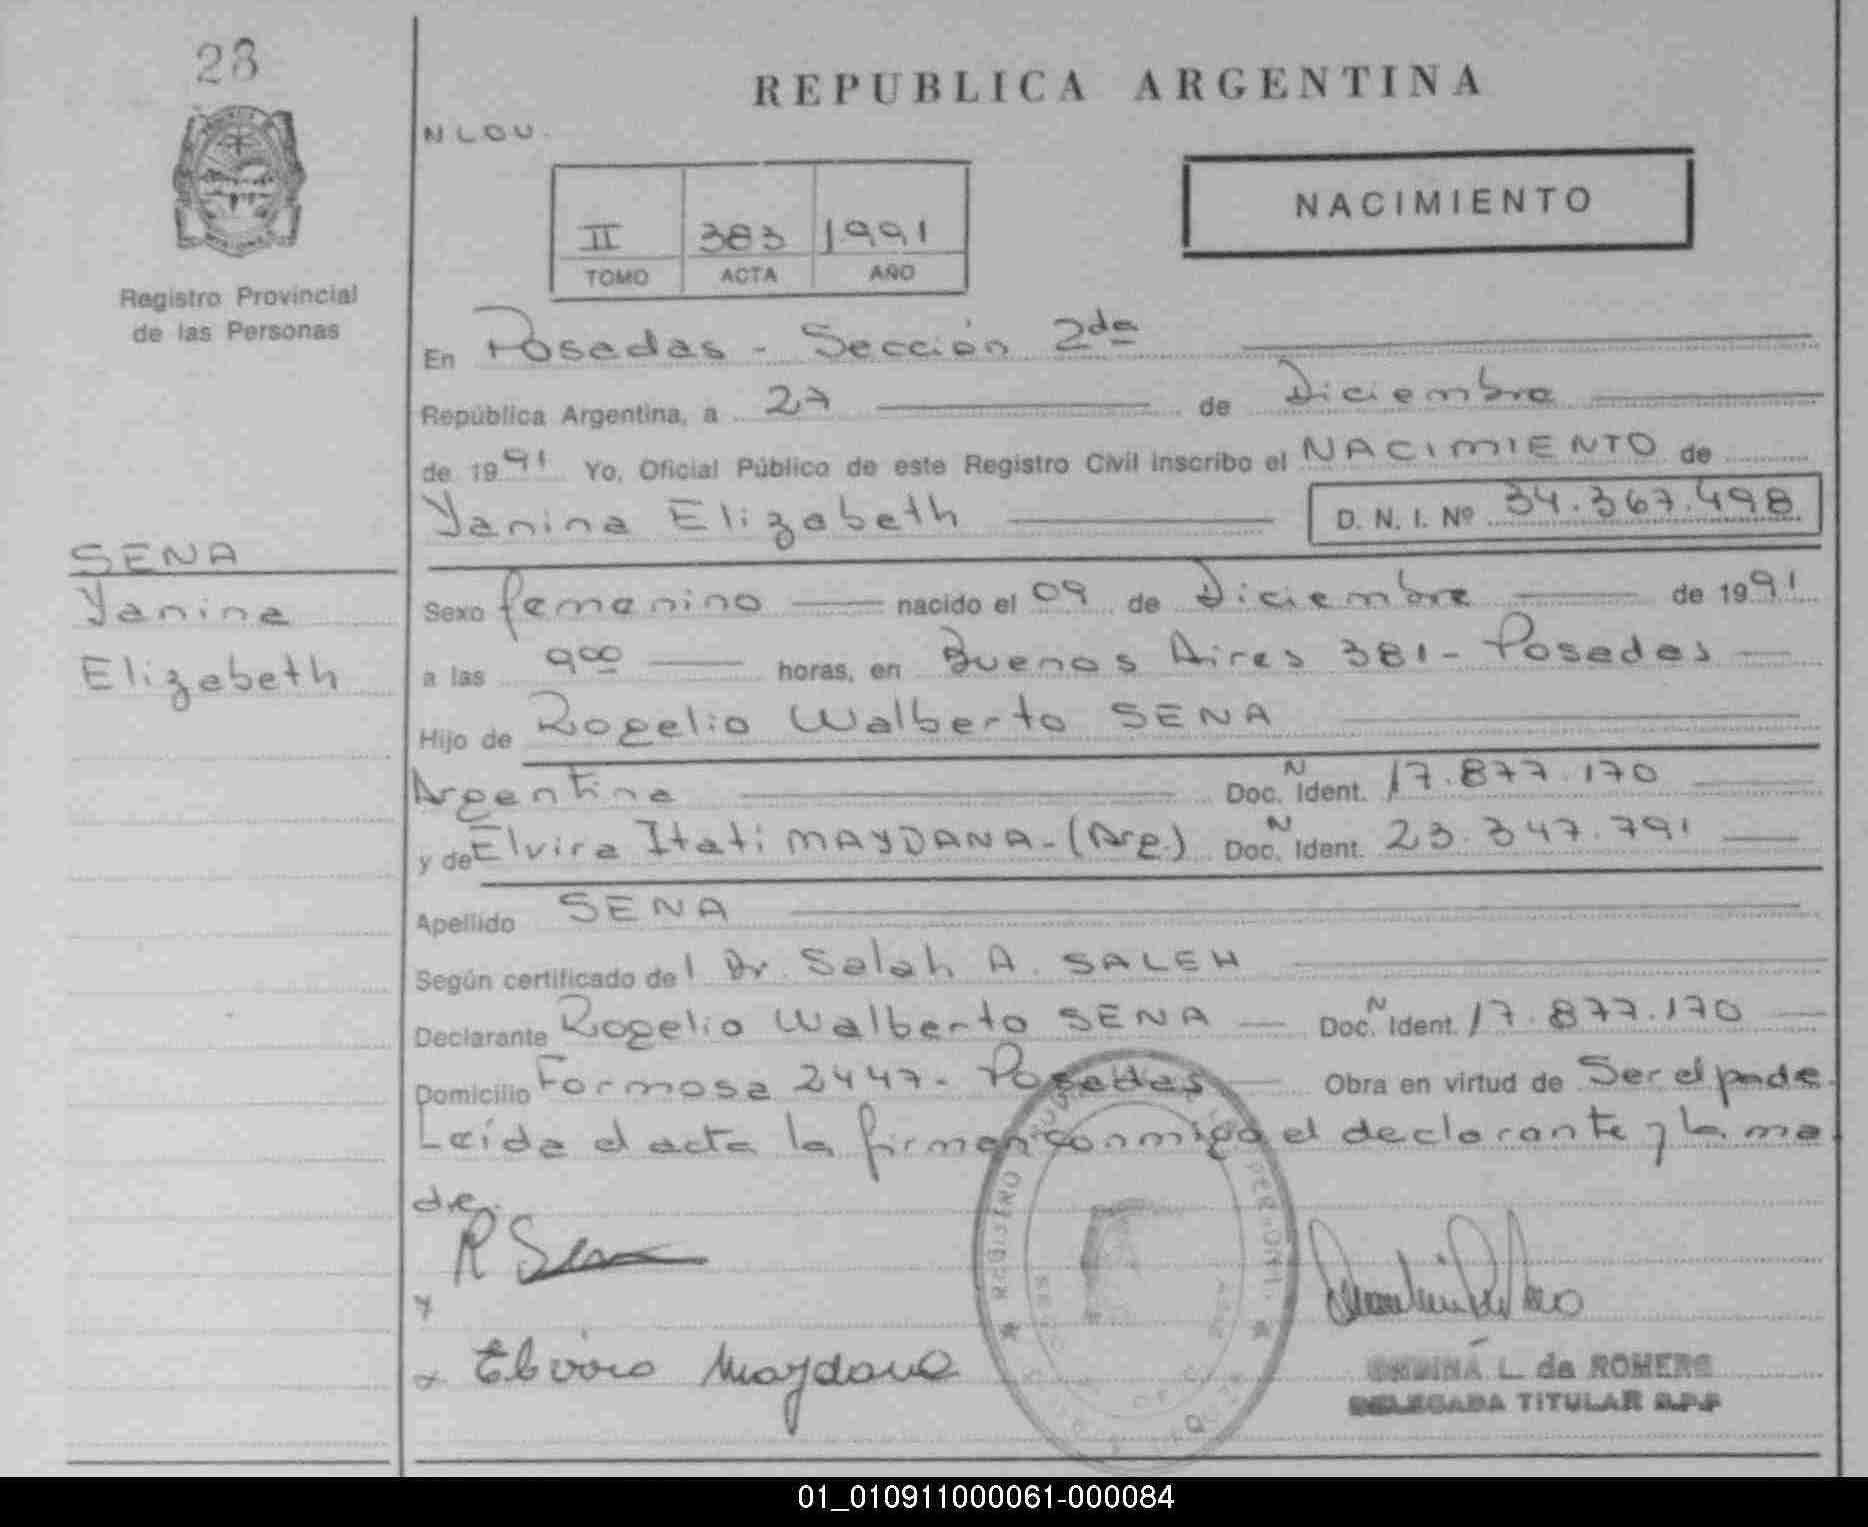 23
REPUBLICA ARGENTINA
N L O U.
NACIMIENTO
II 383 1991
TOMO ACTA AÑO
Registro Provincial
de las Personas
En Posadas - Sección 2da
República Argentina, a 27 de Diciembre
de 1991 Yo, Oficial Público de este Registro Civil inscribo el NACIMIENTO de
Yanina Elizabeth D. N. I. Nº 34.367.498
SENA
Yanina
Elizabeth
Sexo femenino nacido el 09 de Diciembre de 1991
a las 9 00 horas, en Buenos Aires 381 - Posadas
Hijo de Rogelio Walberto SENA
Argentina Doc. N Ident. 17.877.170
y de Elvira Itati MAYDANA - (Arg.) Doc. N Ident. 23.347.791
Apellido SENA
Según certificado del Dr. Salah A. SALEH
Declarante Rogelio Walberto SENA Doc. N Ident. 17.877.170
Domicilio Formosa 2447 - Posadas Obra en virtud de Ser el padre.
Leída el acta la firman conmigo el declarante y la ma
dre.
R Sena
Elvira Maydana
L. de ROMERO
DELEGADA TITULAR R.P.P
REGISTRO
01_010911000061-000084